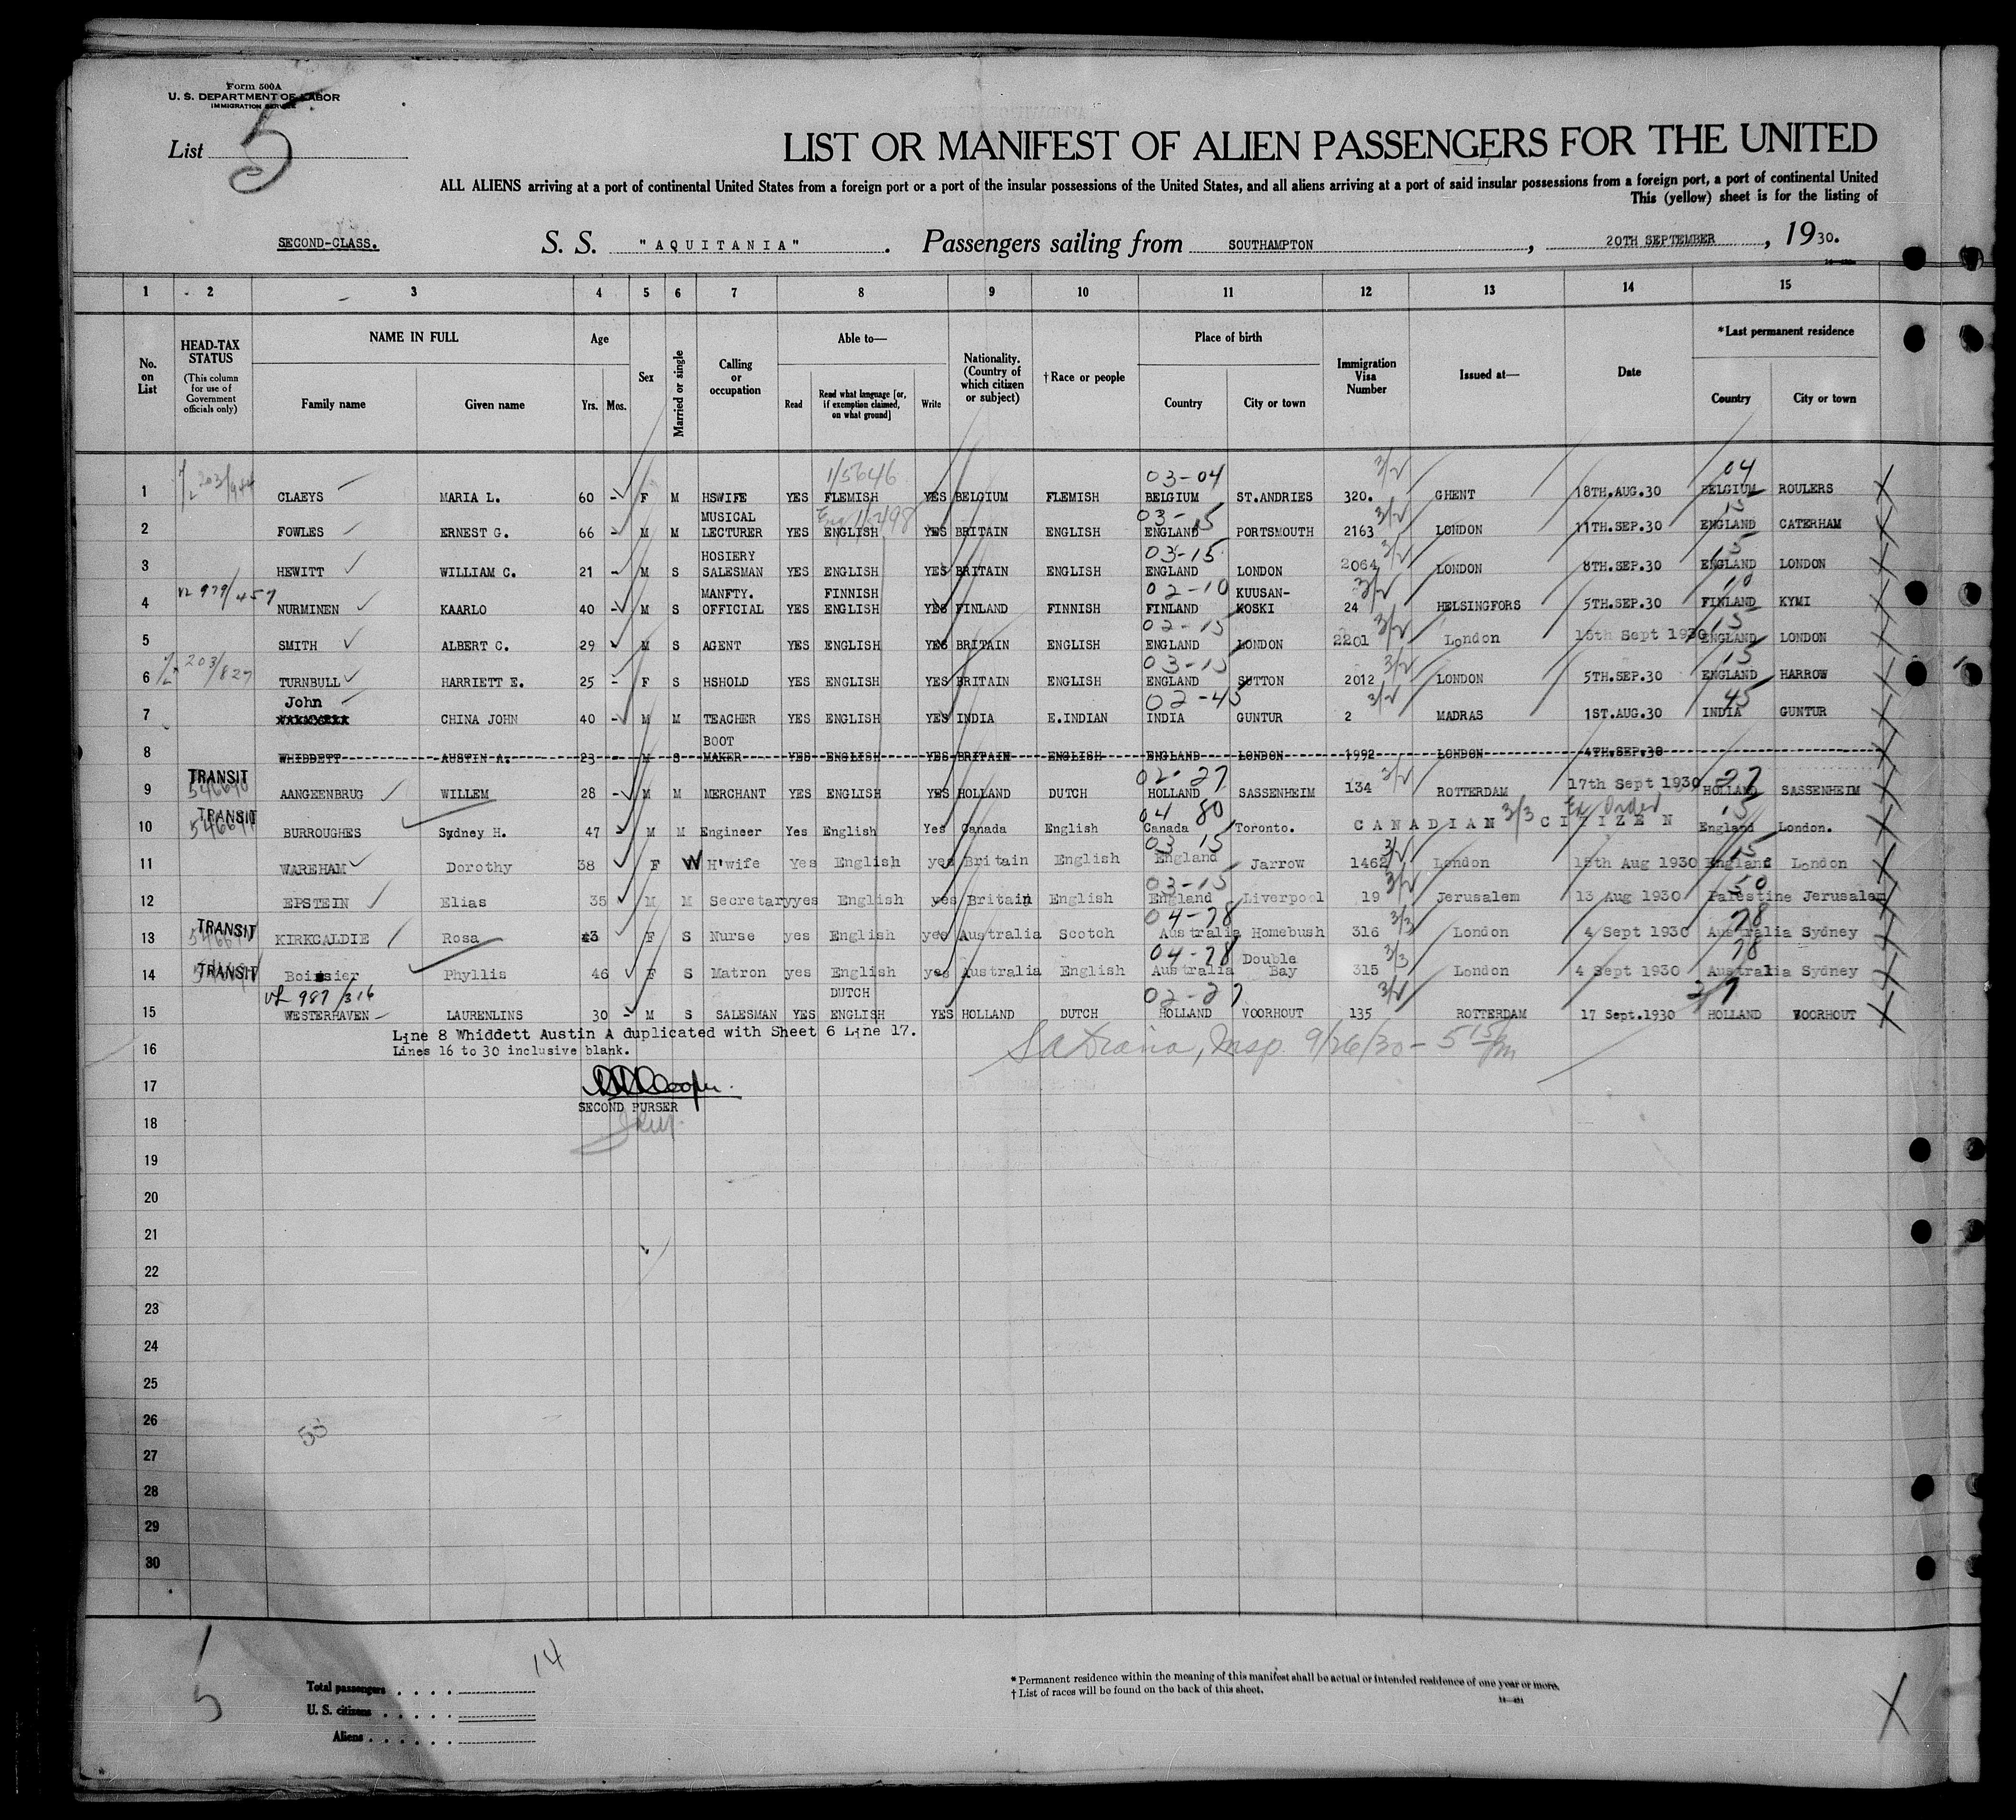 Form 500A
U. S. DEPARTMENT OF LABOR
IMMIGRATION SERVICE
List 5
LIST OR MANIFEST OF ALIEN PASSENGERS FOR THE UNITED
ALL ALIENS arriving at a port of continental United States from a foreign port or a port of the insular possessions of the United States, and all aliens arriving at a port of said insular possessions from a foreign port, a port of continental United
This (yellow) sheet is for the listing of
SECOND-CLASS. S. S. "AQUITANIA". Passengers sailing from SOUTHAMPTON, 20TH SEPTEMBER, 1930.
1 2 3 4 5 6 7 8 9 10 11 12 13 14 15
No. on List
HEAD-TAX STATUS
(This column for use of Government officials only)
NAME IN FULL
Family name Given name
Age
Yrs. Mos.
Sex
Married or single
Calling or occupation
Able to—
Read Read what language [or, if exemption claimed, on what ground] Write
Nationality. (Country of which citizen or subject)
† Race or people
Place of birth
Country City or town
Immigration Visa Number
Issued at—
Date
*Last permanent residence
Country City or town
15646 03-04 3/2 04
1 203/944 CLAEYS MARIA L. 60 - F M HSWIFE YES FLEMISH YES BELGIUM FLEMISH BELGIUM ST.ANDRIES 320. GHENT 18TH.AUG.30 BELGIUM ROULERS
03-15 3/2 15
2 FOWLES ERNEST G. 66 - M M MUSICAL LECTURER YES ENGLISH YES BRITAIN ENGLISH ENGLAND PORTSMOUTH 2163 LONDON 11TH.SEP.30 ENGLAND CATERHAM
03-15 3/2 15
3 HEWITT WILLIAM C. 21 - M S HOSIERY SALESMAN YES ENGLISH YES BRITAIN ENGLISH ENGLAND LONDON 2064 LONDON 8TH.SEP.30 ENGLAND LONDON
979/457 02-10 3/2 10
4 NURMINEN KAARLO 40 - M S MANFTY. OFFICIAL YES FINNISH ENGLISH YES FINLAND FINNISH FINLAND KUUSAN-KOSKI 24 HELSINGFORS 5TH.SEP.30 FINLAND KYMI
02-15 3/2 15
5 SMITH ALBERT C. 29 M S AGENT YES ENGLISH YES BRITAIN ENGLISH ENGLAND LONDON 2201 London 15th Sept 1930 ENGLAND LONDON
203/827 03-15 3/2 15
6 TURNBULL HARRIETT E. 25 - F S HSHOLD YES ENGLISH YES BRITAIN ENGLISH ENGLAND SUTTON 2012 LONDON 5TH.SEP.30 ENGLAND HARROW
John 02-45 3/2 45
7 CHINA JOHN 40 - M M TEACHER YES ENGLISH YES INDIA E.INDIAN INDIA GUNTUR 2 MADRAS 1ST.AUG.30 INDIA GUNTUR
8 WHIDDETT AUSTIN A. 23 - M S BOOT MAKER YES ENGLISH YES BRITAIN ENGLISH ENGLAND LONDON 1992 LONDON 4TH.SEP.30
TRANSIT 02-27 3/2 27
9 AANGEENBRUG WILLEM 28 - M M MERCHANT YES ENGLISH YES HOLLAND DUTCH HOLLAND SASSENHEIM 134 ROTTERDAM 17th Sept 1930 HOLLAND SASSENHEIM
TRANSIT 04 80 3/3 Ex Order 15
10 BURROUGHES Sydney H. 47 - M M Engineer Yes English Yes Canada English Canada Toronto. CANADIAN CITIZEN England London.
03 15 3/2 15
11 WAREHAM Dorothy 38 F W H'wife Yes English yes Britain English England Jarrow 1462 London 15th Aug 1930 England London
03-15 3/2 50
12 EPSTEIN Elias 35 M M Secretary yes English yes Britain English England Liverpool 19 Jerusalem 13 Aug 1930 Palestine Jerusalem
TRANSIT 04-78 3/3 78
13 KIRKCALDIE Rosa 43 F S Nurse yes English yes Australia Scotch Australia Homebush 316 London 4 Sept 1930 Australia Sydney
TRANSIT 04-78 3/3 78
14 Boissier Phyllis 46 F S Matron yes English yes Australia English Australia Double Bay 315 London 4 Sept 1930 Australia Sydney
987/316 02-27 3/2 27
15 WESTERHAVEN LAURENLINS 30 - M S SALESMAN YES DUTCH ENGLISH YES HOLLAND DUTCH HOLLAND VOORHOUT 135 ROTTERDAM 17 Sept.1930 HOLLAND VOORHOUT
Line 8 Whiddett Austin A duplicated with Sheet 6 Line 17.
16 Lines 16 to 30 inclusive blank. Insp. 9/26/30 - 5 15 pm
17
SECOND PURSER
18
19
20
21
22
23
24
25
26
27
28
29
30
Total passengers . . . . 14
U. S. citizens . . . . .
Aliens . . . . . .
* Permanent residence within the meaning of this manifest shall be actual or intended residence of one year or more.
† List of races will be found on the back of this sheet.